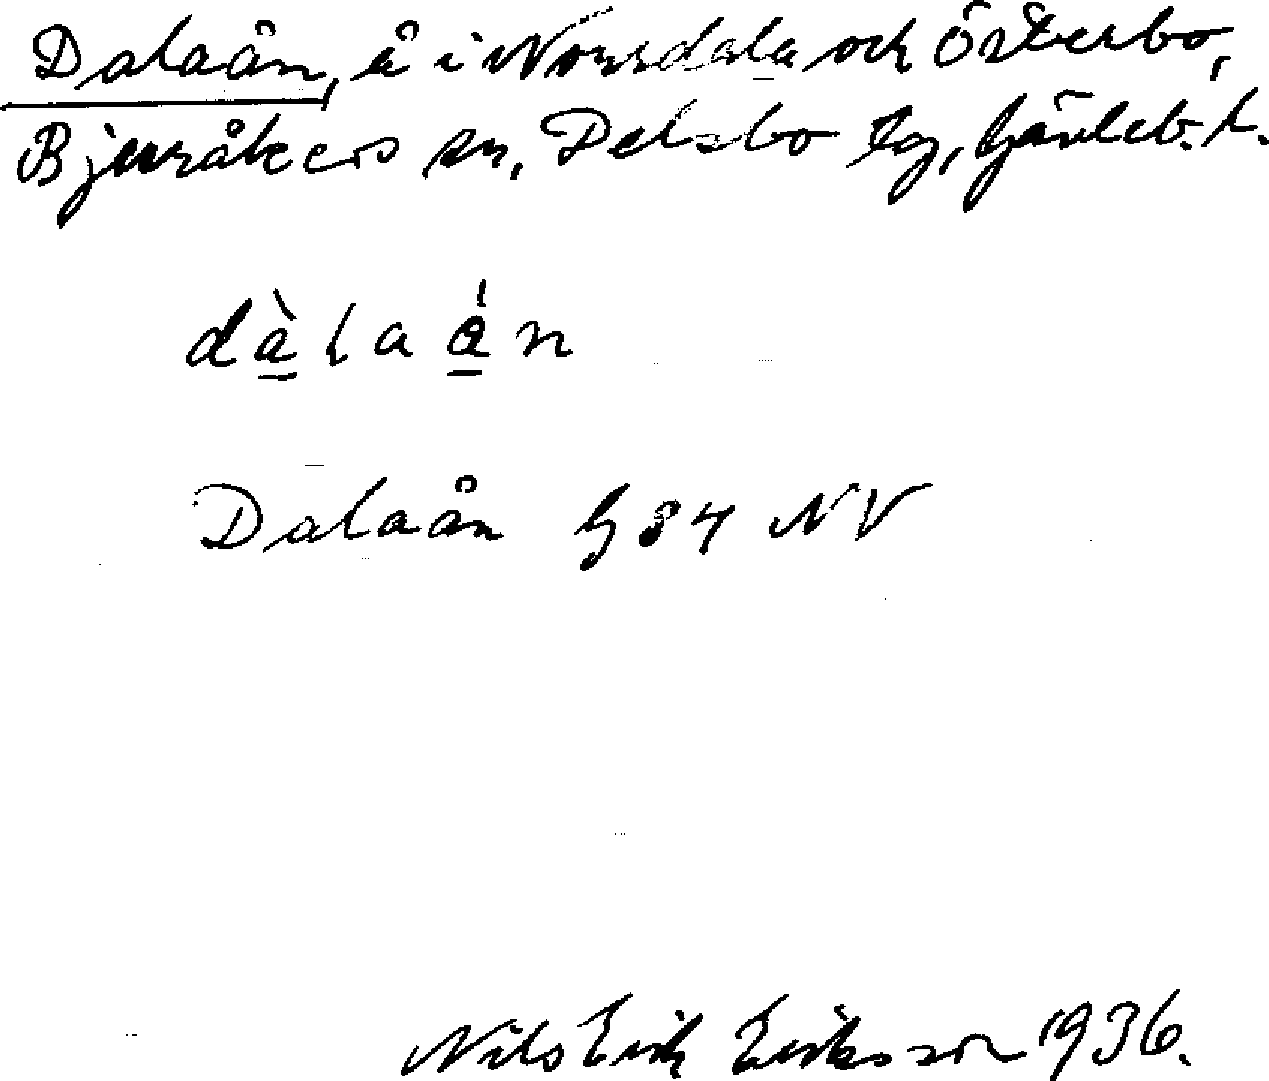 Dalaån, å i Norrdala och Österbo,
Bjuråkers sn, Delsbo tg, Gävleb. l.
dàlaán
Dalaån G 84 NV
Nils Erik Eriksson 1936.